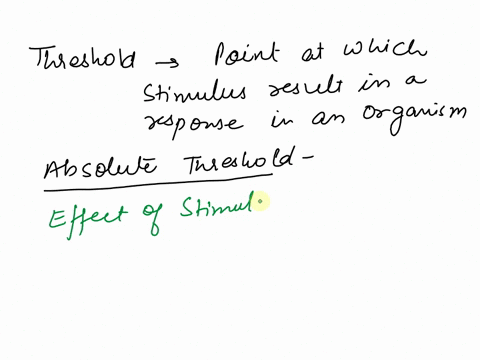 Threshold → Point at which
Stimulus result in a
response in an Organism
Absolute Threshold -
Effect of Stimul